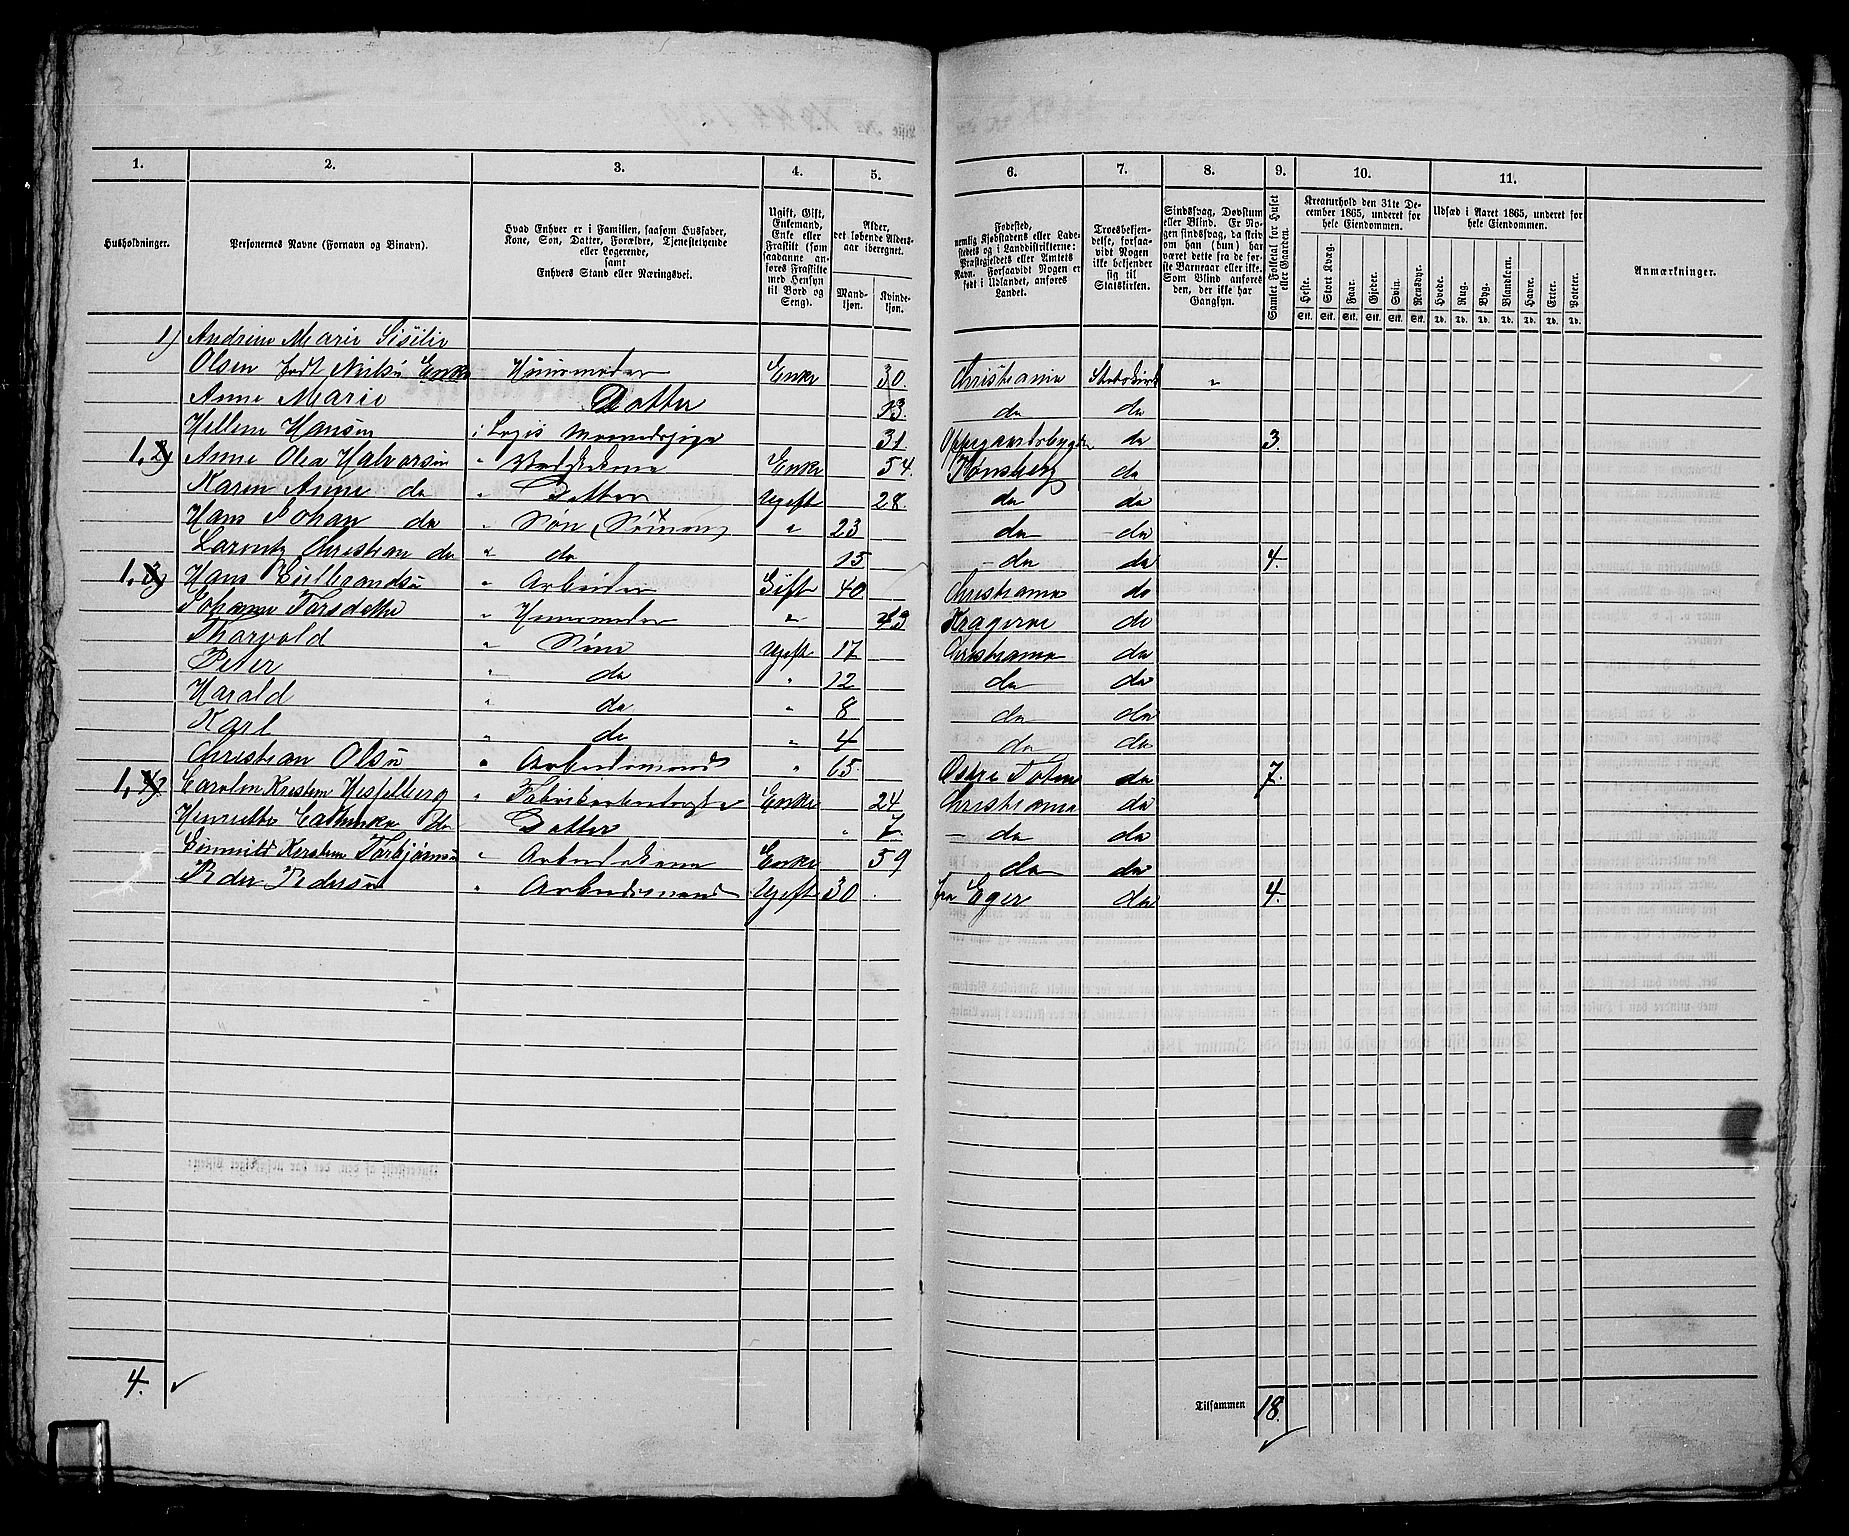 1. 2. 3. 4. 5. 6. 7. 8. 9. 10. 11.
Husholdninger.
Personernes Navne (Fornavn og Binavn).
Hvad Enhver er i Familien, saasom Husfader,
Kone, Søn, Datter, Forældre, Tjenestetyende
eller Logerende,
samt
Enhvers Stand eller Næringsvei.
Ugift, Gift,
Enkemand,
Enke eller
Fraskilt (som
saadanne an-
føres Fraskilte
med Hensyn
til Bord og
Seng).
Alder,
det løbende Alders-
aar iberegnet.
Mand-
kjøn.
Kvinde-
kjøn.
Fødested,
nemlig Kjøbstadens eller Lade-
stedets og i Landdistrikterne:
Præstegjeldets eller Amtets
Navn. Forsaavidt Nogen er
født i Udlandet, anføres
Landet.
Troesbekjen-
delse, forsaa-
vidt Nogen
ikke bekjender
sig til
Statskirken.
Sindssvag, Døvstum
eller Blind. Er No-
gen sindssvag, da skriv
om han (hun) har
været dette fra de før-
ste Barneaar eller ikke.
Som Blind anføres
den, der ikke har
Gangsyn.
Samlet Folketal for Huset
eller Gaarden.
Kreaturhold den 31te De-
cember 1865, underet for
hele Eiendommen.
Heste. Stort Kvæg. Faar. Gjeder. Svin. Rensdyr.
Stk. Stk. Stk. Stk. Stk. Stk.
Udsæd i Aaret 1865, underet for
hele Eiendommen.
Hvede. Rug. Byg. Blandkorn. Havre. Erter. Poteter.
Td. Td. Td. Td. Td. Td. Td.
Anmærkninger.
1) Andrine Marie Sisilie
Olsen født Nilsn Enke Huusmoder Enke 30. Christiania Statskirk "
Anne Marie Datter 13. do do
Hellene Hansen i Logis 31. do 3.
1, 2) Anne Olea Halvorsen " Enke 54. do
Karen Anne do " Datter Ugift 28. do do
Hans Johan do " Søn (Sømand) " 23 do do
Larentz Christian do " do 15 do do 4.
1, 3) Hans Gulbrandsn " Arbeider Gift 40 Christiania do
Johanne Torsdatter " Huusmoder " 43 Kragerøe do
Tharvald " Sønn Ugift 17 Christiania do
Peter " do " 12 do do
Harald " do " 8 do do
Karl " do " 4 do do
Christian Olsn " Arbeidsmand " 65. Østre Toten do 7.
1, 4) Carolin Kristen Hesselberg " Enke 24 Christiania do
Henriette Cathinka do " Datter " 7. do do
Kersten Torbjørnsn " Arbeidskone Enke 59 do do
Peder Pedersn " Arbeidsmand Ugift 30 fra Eger do 4.
4.
Tilsammen 18.